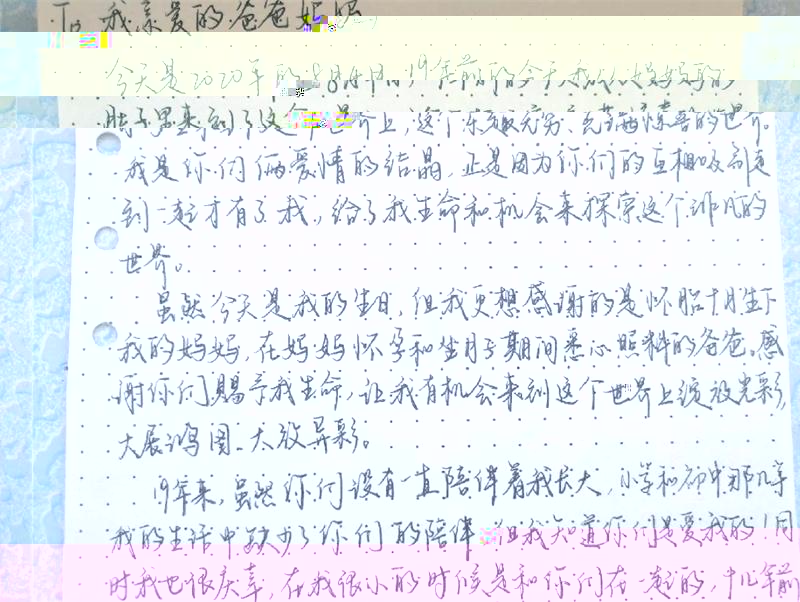 To 我亲爱的爸爸妈妈
今天是2020年的8月 19年前的今天我从妈妈的
肚子里来到了这个世界上,这个乐趣无穷、充满惊喜的世界。
我是你们俩爱情的结晶,正是因为你们的互相吸引走
到一起才有了我,给了我生命和机会来探索这个非凡的
世界。
虽然今天是我的生日,但我更想感谢的是怀胎十月生下
我的妈妈,在妈妈怀孕和坐月子期间悉心照料的爸爸。感
谢你们赐予我生命,让我有机会来到这个世界上绽放光彩,
大展鸿图、大放异彩。
19年来,虽然你们没有一直陪伴着我长大,小学和初中那几年
我的生活中缺少了你们的陪伴 但我知道你们是爱我的!同
时我也很庆幸,在我很小的时候是和你们在一起的,十几年前